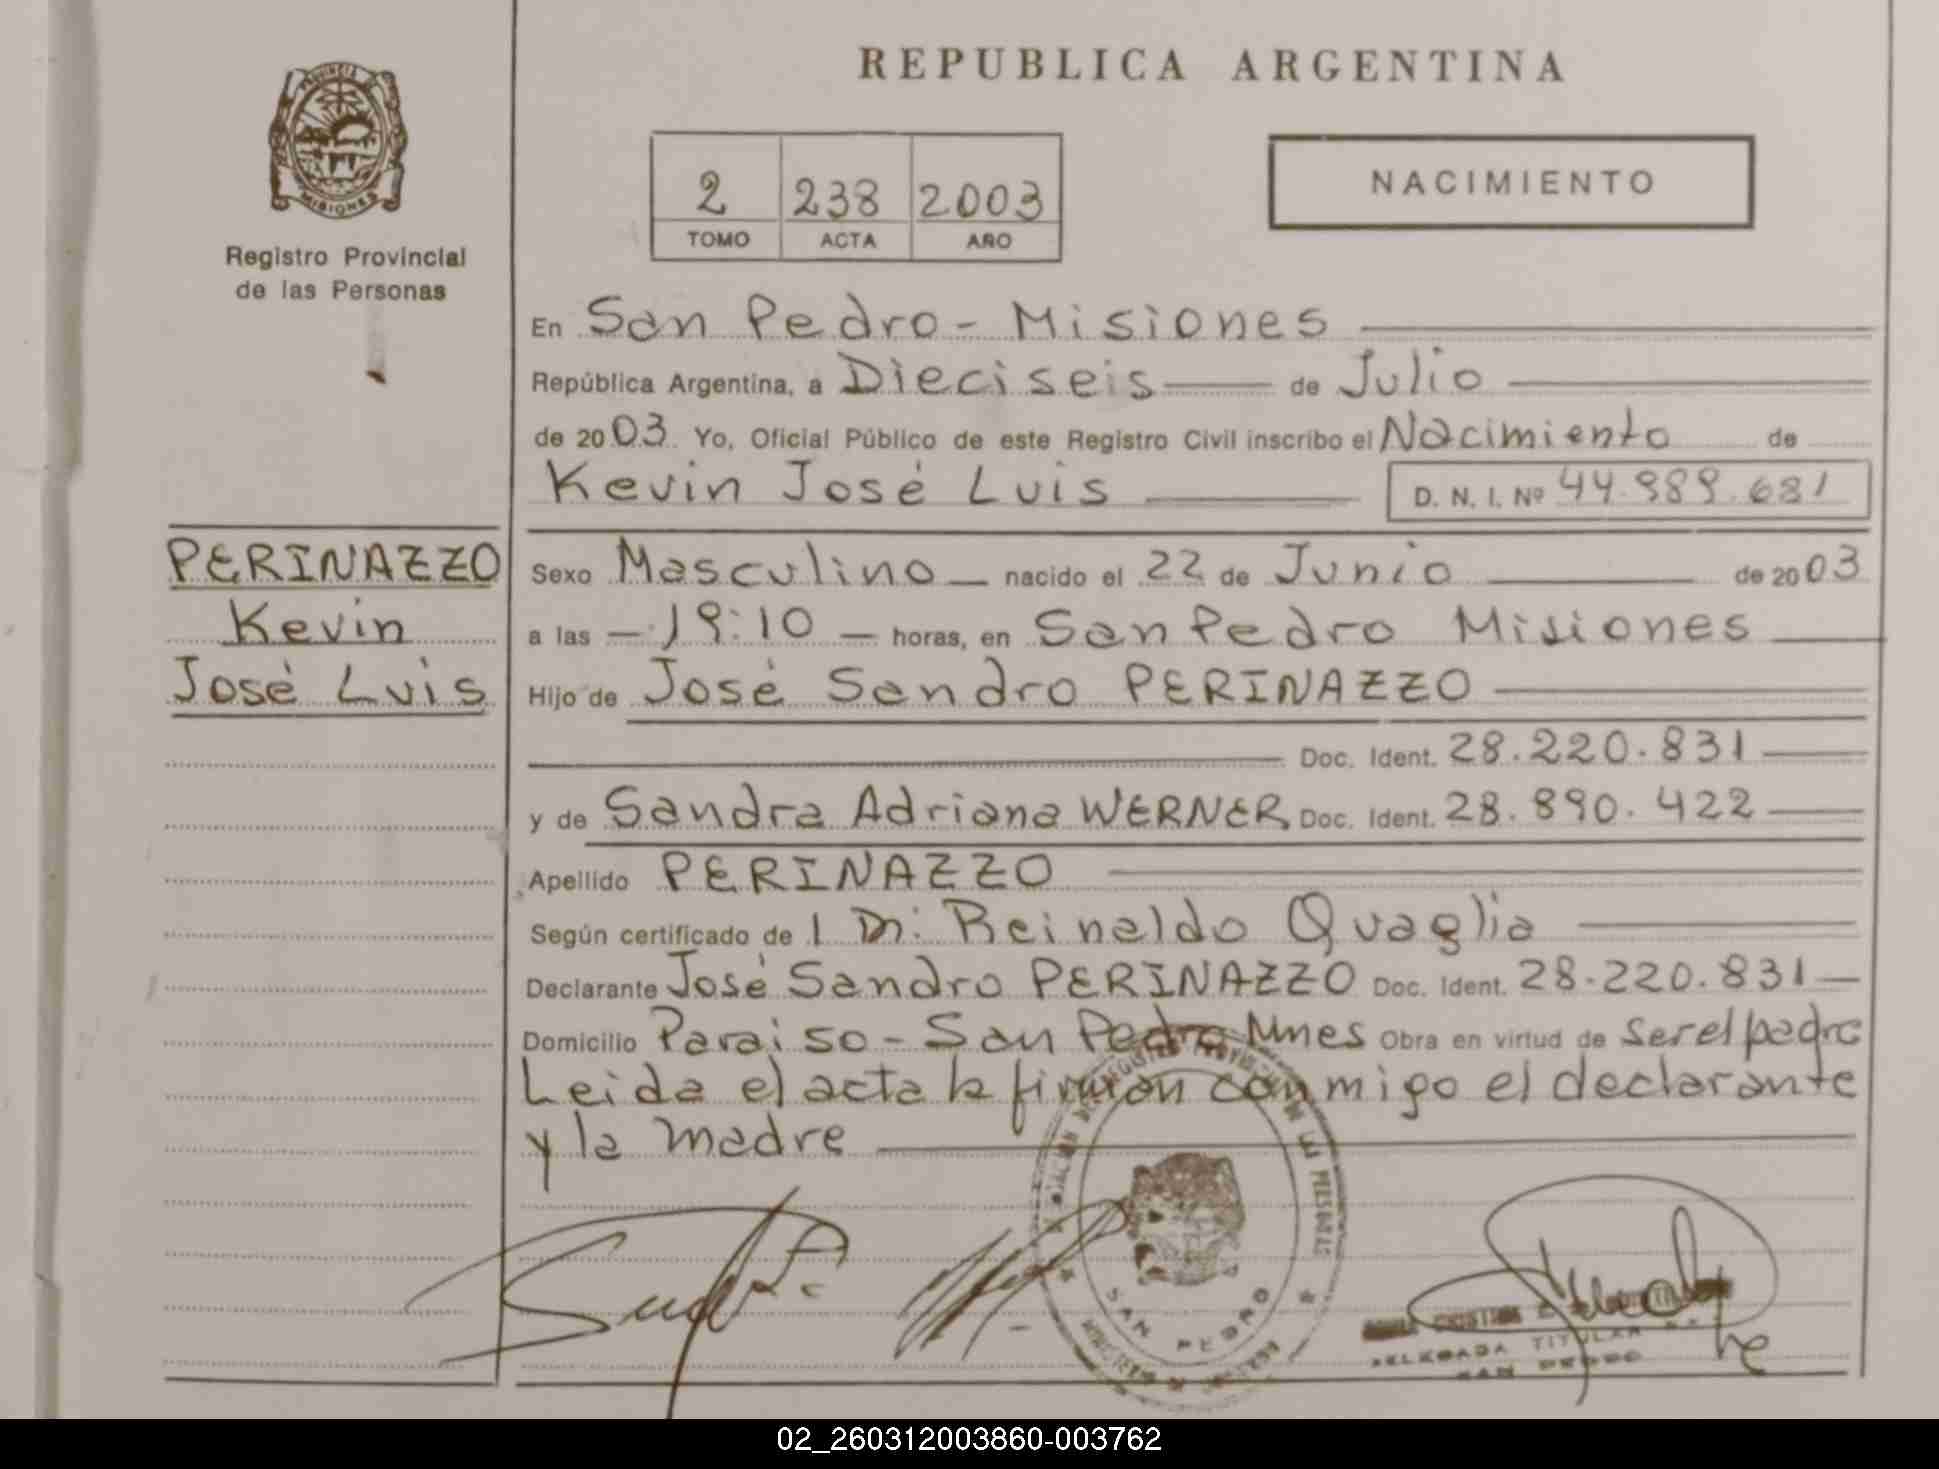 REPUBLICA ARGENTINA
PROVINCIA DE
MISIONES
Registro Provincial
de las Personas
2 238 2003
TOMO ACTA AÑO
NACIMIENTO
En San Pedro - Misiones
República Argentina, a Dieciseis de Julio
de 2003 Yo, Oficial Público de este Registro Civil inscribo el Nacimiento de
Kevin José Luis D. N. I. Nº 44.989.681
PERINAZZO
Kevin
José Luis
Sexo Masculino nacido el 22 de Junio de 2003
a las 19:10 horas, en San Pedro Misiones
Hijo de José Sandro PERINAZZO
Doc. Ident. 28.220.831
y de Sandra Adriana WERNER Doc. Ident. 28.890.422
Apellido PERINAZZO
Según certificado de 1 Dr. Reinaldo Quaglia
Declarante José Sandro PERINAZZO Doc. Ident. 28.220.831
Domicilio Paraiso - San Pedro Mnes Obra en virtud de ser el padre
Leida el acta la firman conmigo el declarante
y la madre
DE LAS PERSONAS
SAN PEDRO
DELEGADA TITULAR
SAN PEDRO
02_260312003860-003762